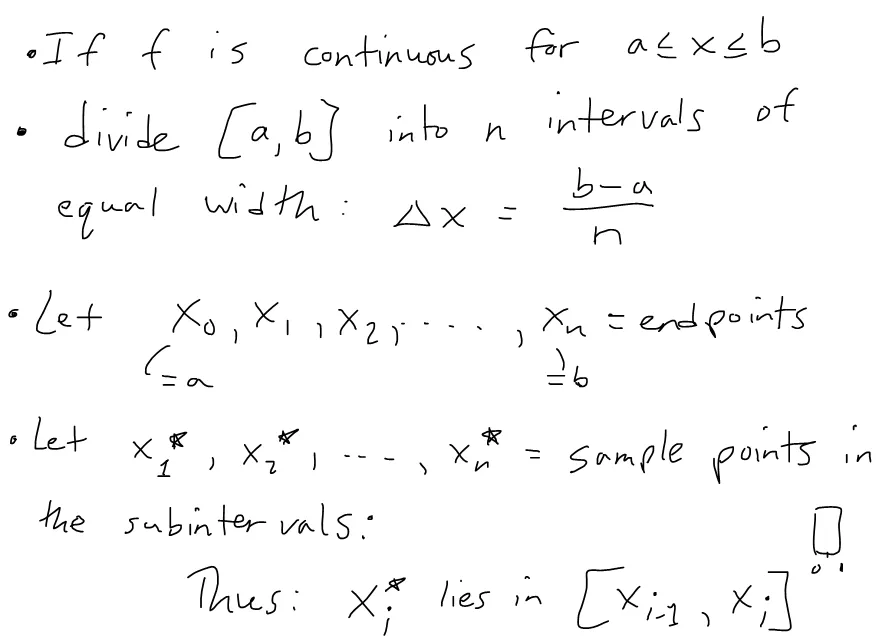 • If f is continuous for a ≤ x ≤ b
• divide [a, b] into n intervals of
equal width: Δx = (b-a)/n
• Let x₀, x₁, x₂, ...., xₙ = endpoints
(= a )= b
• Let x₁*, x₂*, ---, xₙ* = sample points in
the subintervals:
0 1
Thus: xᵢ* lies in [xᵢ₋₁, xᵢ]